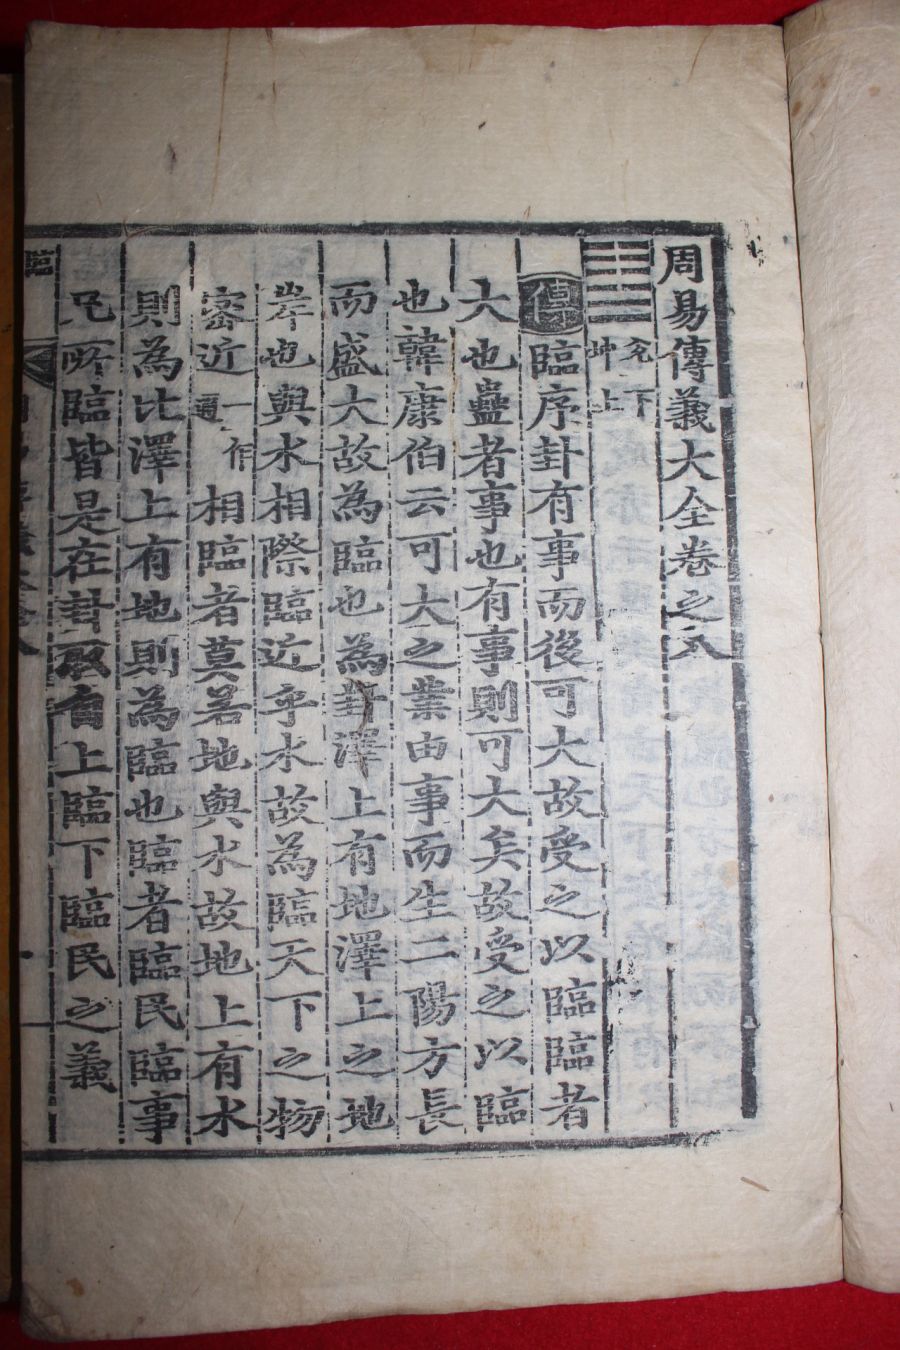 周易傳義大全卷之八
䷒ 兊下坤上
傳 臨序卦有事而後可大故受之以臨臨者
大也蠱者事也有事則可大矣故受之以臨
也韓康伯云可大之業由事而生二陽方長
而盛大故為臨也為卦澤上有地澤上之地
岸也與水相際臨近乎水故為臨天下之物
密近一作邇相臨者莫若地與水故地上有水
則為比澤上有地則為臨也臨者臨民臨事
凡所臨皆是在卦取自上臨下臨民之義
臨